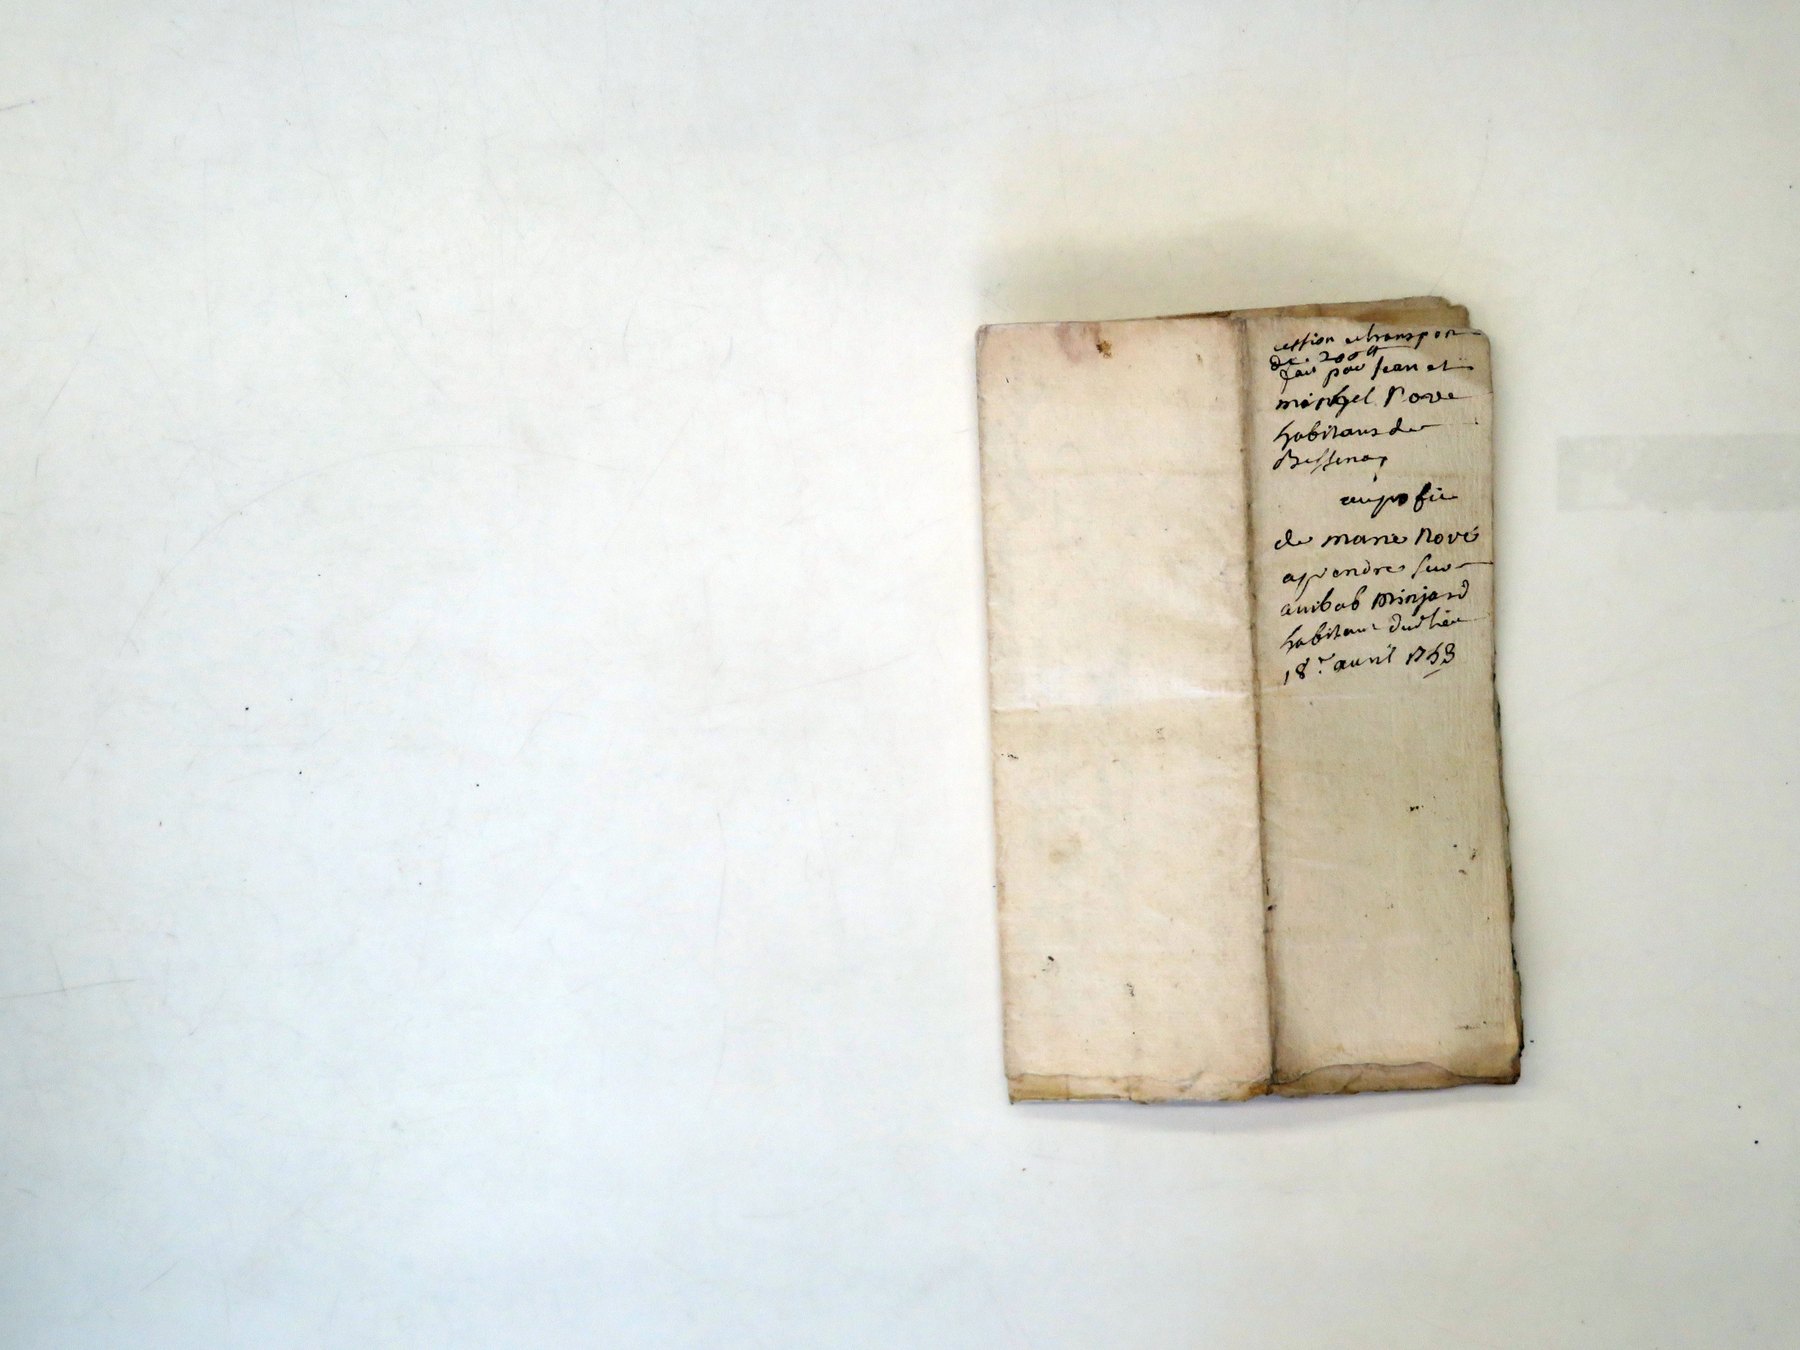 cession et transport
de 200 ₶
fait par Jean et
michel Rove
habitans de
Bessenay
au profit
de marie Rové
aprendre sur
anibab minjard
habitant dud lieu
18.e avril 1753